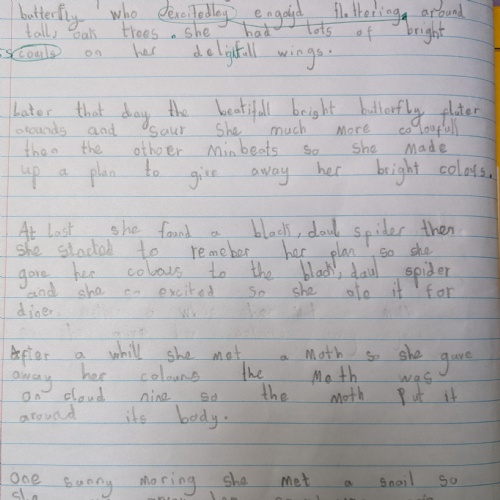 butterfly who excitedley engoyd fluttering around
tall, oak trees. she had lots of bright
couls on her deligtfull wings.
Later that day the beatifull bright butterfly fluter
arounds and saur she much more colourfull
then the othoer minbeats so she made
up a plan to give away her bright colors.
At last she found a black, daul spider then
she started to remeber her plan so she
gave her colours to the black, daul spider
and she excited so she ate it for
diner.
After a whill she met a moth so she gave
away her colours the Moth was
on cloud nine so the moth put it
around its body.
one sunny moring she met a snail so
she